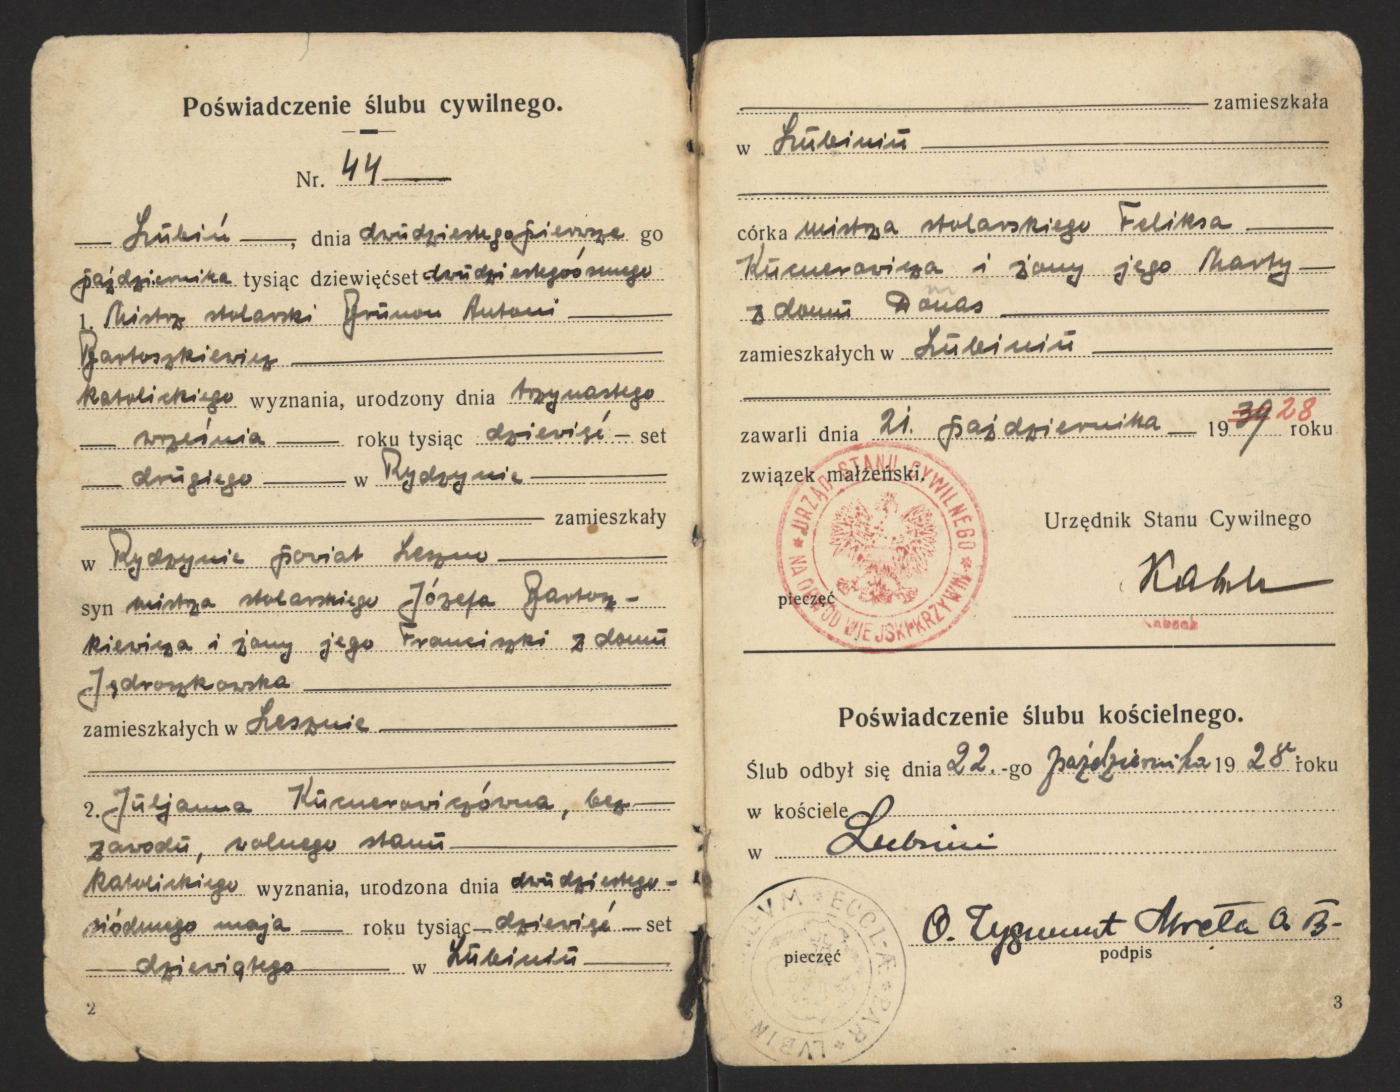 Poświadczenie ślubu cywilnego.
Nr. 44
Lubiń, dnia dwudziestego pierwsze go
października tysiąc dziewięćset dwudziestego ósmego
1. Mistrz stolarski Brunon Antoni
Bartoszkiewicz
katolickiego wyznania, urodzony dnia trzynastego
września roku tysiąc dziewięć set
drugiego w Rydzynie
zamieszkały
w Rydzynie powiat Leszno
syn mistrza stolarskiego Józefa Bartosz-
kiewicza i żony jego Franciszki z domu
Jędroszkowska
zamieszkałych w Lesznie
2. Juljanna Kucnerowiczówna, bez
zawodu, wolnego stanu
katolickiego wyznania, urodzona dnia dwudziestego-
siódmego maja roku tysiąc dziewięć set
dziewiątego w Lubiniu
2
zamieszkała
w Lubiniu
córka mistrza stolarskiego Feliksa
Kucnerowicza i żony jego Marty
z domu Donas
zamieszkałych w Lubiniu
zawarli dnia 21. października 19 39 28 roku
związek małżeński.
URZĄD STANU CYWILNEGO
NA OBWÓD WIEJSKI KRZYWIŃ
Urzędnik Stanu Cywilnego
pieczęć
Poświadczenie ślubu kościelnego.
Ślub odbył się dnia 22.-go października 19 28 roku
w kościele
w Lubiniu
O. Zygmunt
pieczęć
podpis
ECCLÆ PAR LVBIN
3